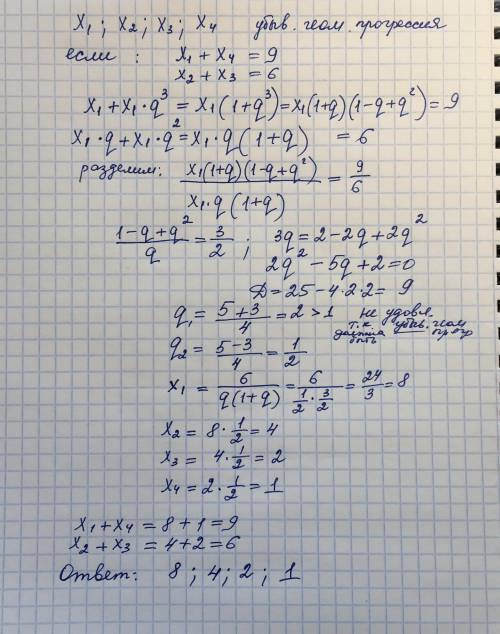 x₁ ; x₂ ; x₃ ; x₄ убыв. геом. прогрессия
если : x₁ + x₄ = 9
x₂ + x₃ = 6
x₁ + x₁·q³ = x₁(1+q³) = x₁(1+q)(1-q+q²) = 9
x₁·q + x₁·q² = x₁·q(1+q) = 6
разделим: x₁(1+q)(1-q+q²) / x₁·q(1+q) = 9/6
(1-q+q²)/q = 3/2 ; 3q = 2-2q+2q²
2q² - 5q + 2 = 0
Д = 25 - 4·2·2 = 9
q₁ = (5+3)/4 = 2 > 1 не удовл.
т.к. убыв. геом
должна быть пр-гр
q₂ = (5-3)/4 = 1/2
x₁ = 6/(q(1+q)) = 6/(1/2 · 3/2) = 24/3 = 8
x₂ = 8·1/2 = 4
x₃ = 4·1/2 = 2
x₄ = 2·1/2 = 1
x₁ + x₄ = 8 + 1 = 9
x₂ + x₃ = 4 + 2 = 6
Ответ: 8 ; 4 ; 2 ; 1